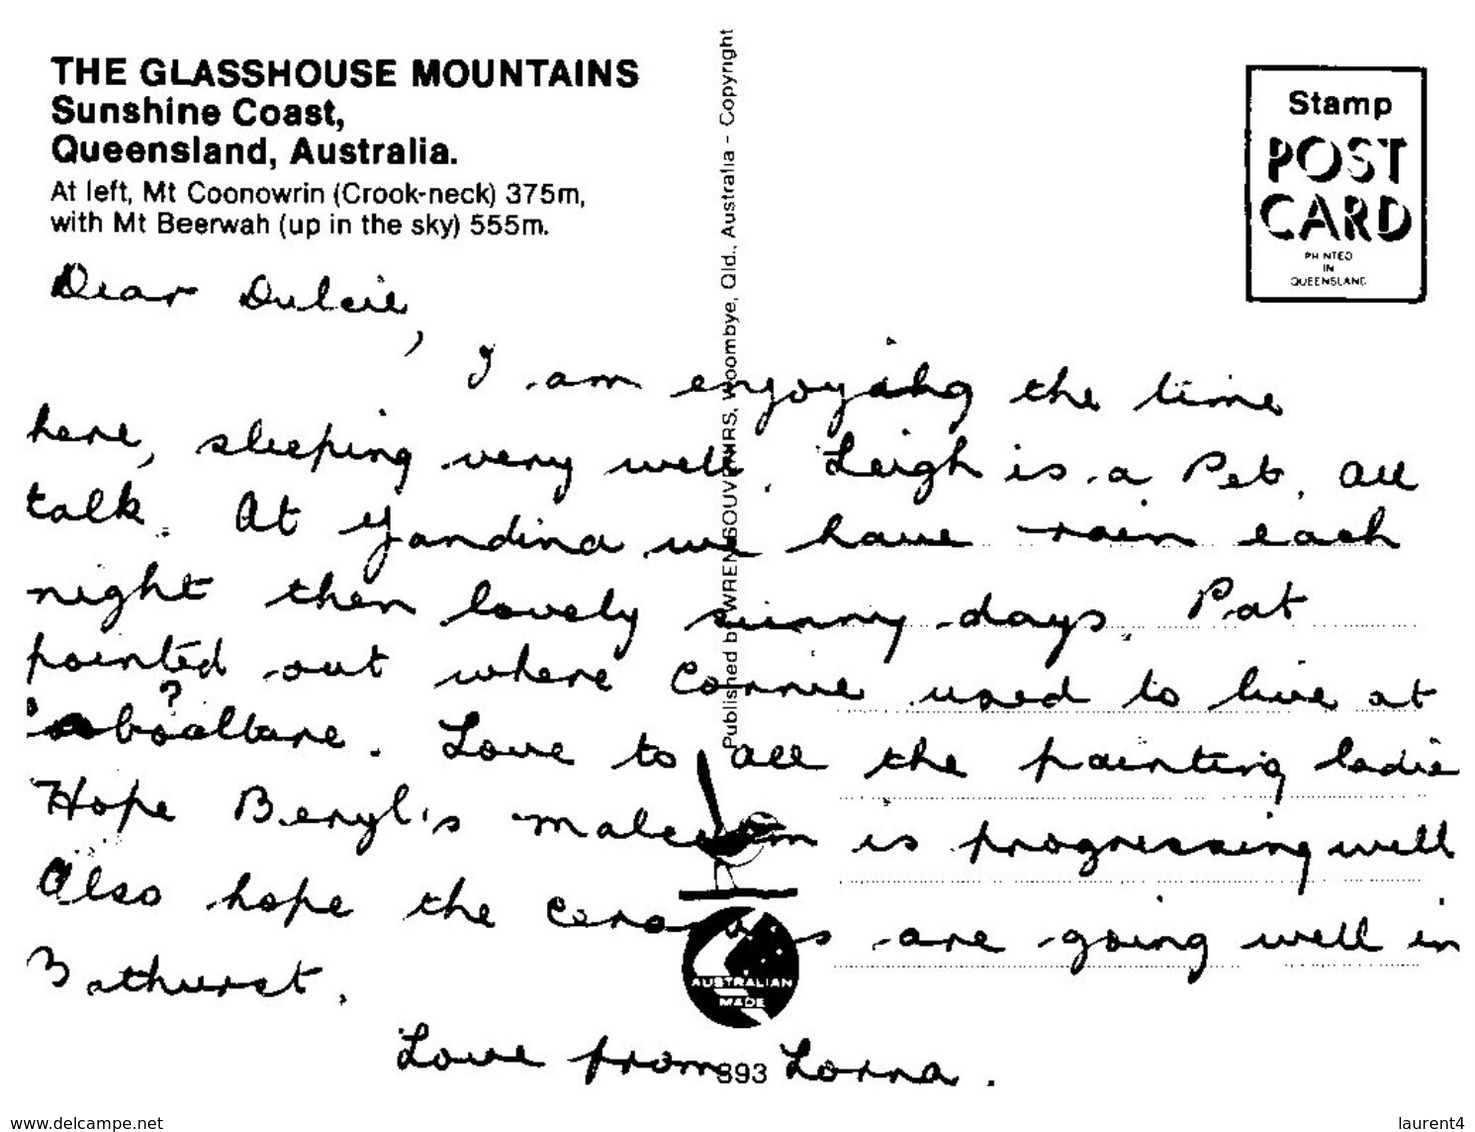 THE GLASSHOUSE MOUNTAINS
Sunshine Coast,
Queensland, Australia.
At left, Mt Coonowrin (Crook-neck) 375m,
with Mt Beerwah (up in the sky) 555m.
Published by WREN SOUVENIRS, Woombye, Qld., Australia - Copyright
Stamp
POST
CARD
PRINTED
IN
QUEENSLAND
Dear Dulcie,
I am enjoying the time
here, sleeping very well. Leigh is a Pet, all
talk. At Yandina we have rain each
night then lovely sunny days. Pat
pointed out where Connie used to live at
?
Love to all the painting ladie
Hope Beryl's is progressing well
Also hope the are going well in
Bathurst.
AUSTRALIAN
MADE
Love from Lorna.
893
www.delcampe.net
laurent4